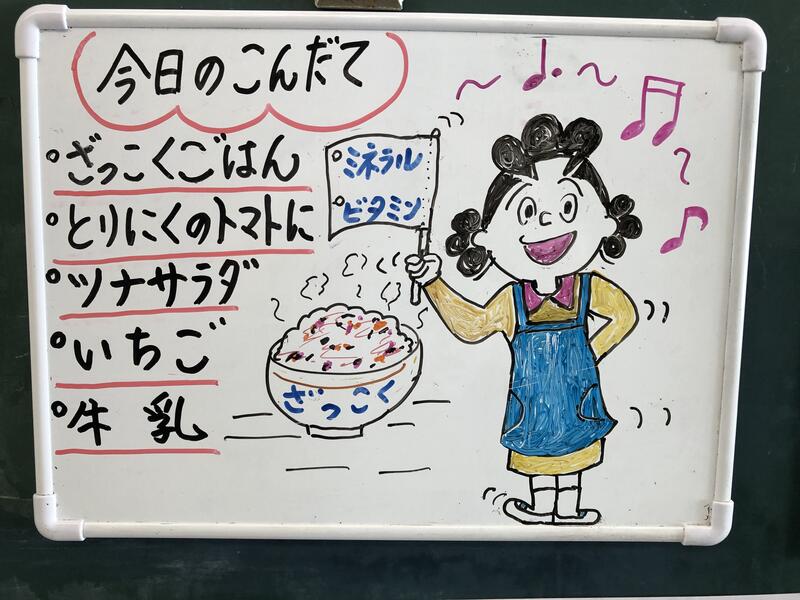 今日のこんだて
ざっこくごはん
とりにくのトマトに
ツナサラダ
いちご
牛乳
ミネラル
ビタミン
ざっこく